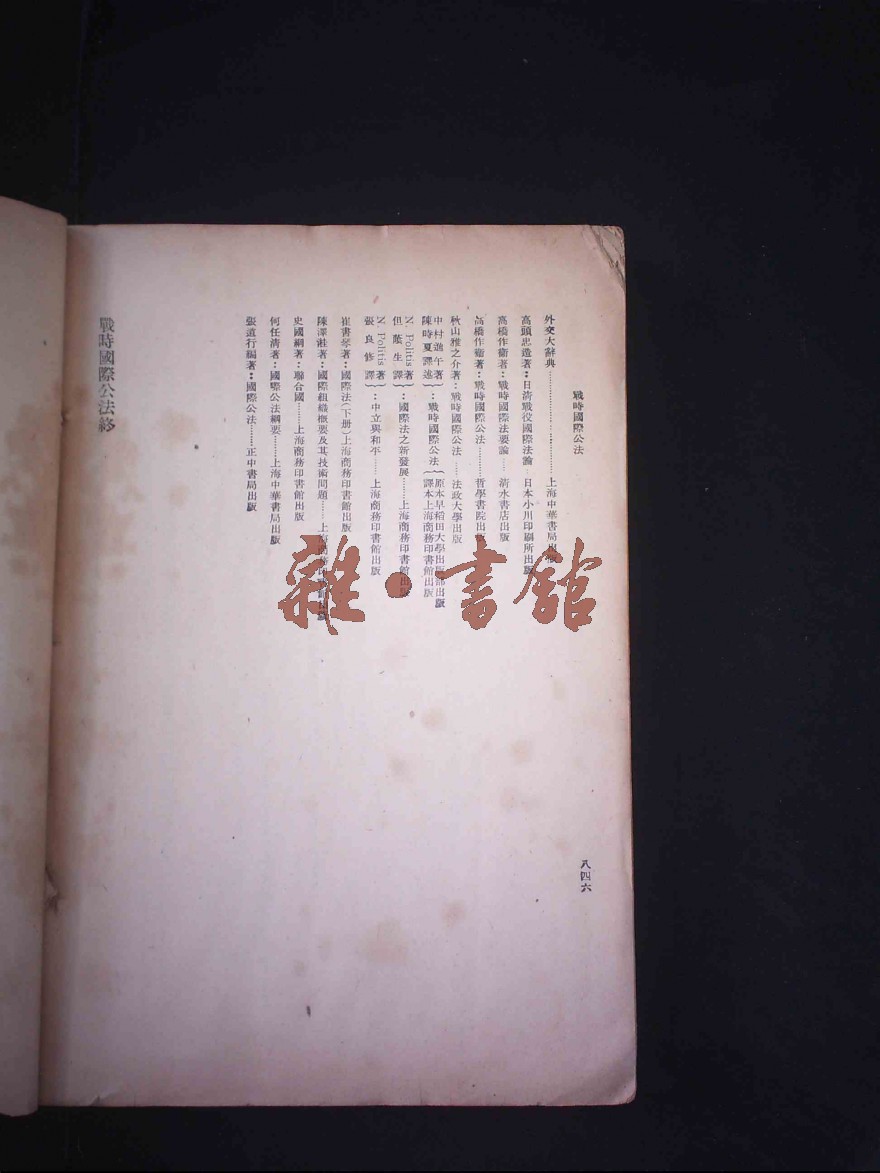 戰時國際公法
外交大辭典……上海中華書局出版
高頭忠造著：日清戰役國際法論…日本小川印刷所出版
高橋作衞著：戰時國際法要論……清水書店出版
高橋作衞著：戰時國際公法……哲學書院出版
秋山雅之介著：戰時國際公法……法政大學出版
中村進午著
陳時夏譯述
：戰時國際公法
原本早稻田大學出版部出版
譯本上海商務印書館出版
N. Politis著
但蔭生譯
：國際法之新發展……上海商務印書館出版
N. Politis著
張良修譯
：中立與和平……上海商務印書館出版
崔書琴著：國際法（下册）上海商務印書館出版
陳澤湉著：國際組織概要及其技術問題……上海商務印書館出版
史國綱著：聯合國……上海商務印書館出版
何任清著：國際公法綱要……上海中華書局出版
張道行編著：國際公法……正中書局出版
戰時國際公法終
八四六
雜·書館